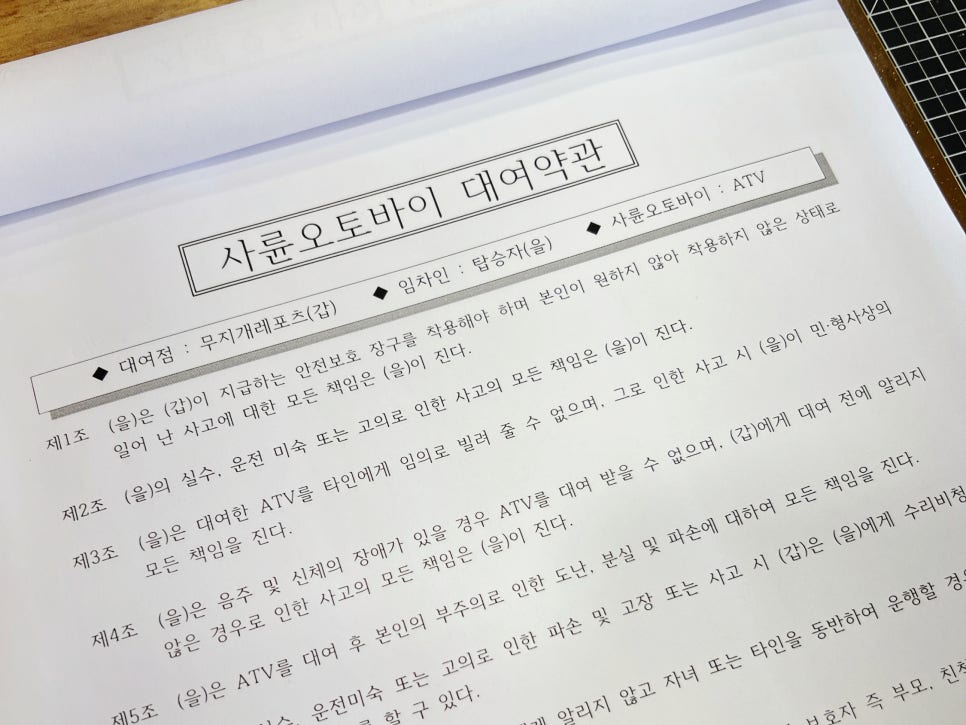 사륜오토바이 대여약관
◆ 대여점 : 무지개레포츠(갑) ◆ 임차인 : 탑승자(을) ◆ 사륜오토바이 : ATV
제1조 (을)은 (갑)이 지급하는 안전보호 장구를 착용해야 하며 본인이 원하지 않아 착용하지 않은 상태로
일어 난 사고에 대한 모든 책임은 (을)이 진다.
제2조 (을)의 실수, 운전 미숙 또는 고의로 인한 사고의 모든 책임은 (을)이 진다.
제3조 (을)은 대여한 ATV를 타인에게 임의로 빌려 줄 수 없으며, 그로 인한 사고 시 (을)이 민·형사상의
모든 책임을 진다.
제4조 (을)은 음주 및 신체의 장애가 있을 경우 ATV를 대여 받을 수 없으며, (갑)에게 대여 전에 알리지
않은 경우로 인한 사고의 모든 책임은 (을)이 진다.
제5조 (을)은 ATV를 대여 후 본인의 부주의로 인한 도난, 분실 및 파손에 대하여 모든 책임을 진다.
운전미숙 또는 고의로 인한 파손 및 고장 또는 사고 시 (갑)은 (을)에게 수리비청
할 구 있다.
알리지 않고 자녀 또는 타인을 동반하여 운행할 경우
보호자 즉 부모, 친척